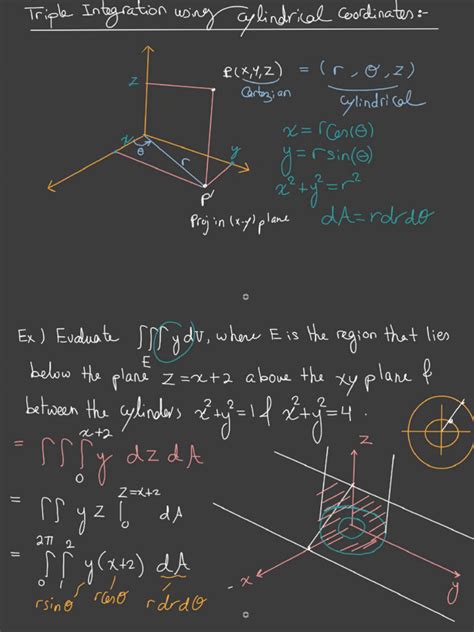 Triple Integration using Cylindrical Coordinates:-
z
P(x,y,z) = (r, θ, z)
Cartezian
cylindrical
x = rcos(θ)
y = rsin(θ)
x²+y²=r²
dA = rdrdθ
x
θ
r
y
P'
Proj in (x-y) plane
Ex) Evaluate ∭_E y dV, where E is the region that lies
below the plane z=x+2 above the xy plane &
between the cylinders x²+y²=1 & x²+y²=4.
= ∫∫∫_0^{x+2} y dz dA
= ∫∫ yz |_0^{z=x+2} dA
= ∫_0^{2π} ∫_1^2 y(x+2) dA
rsinθ rcosθ rdrdθ
z
x
y